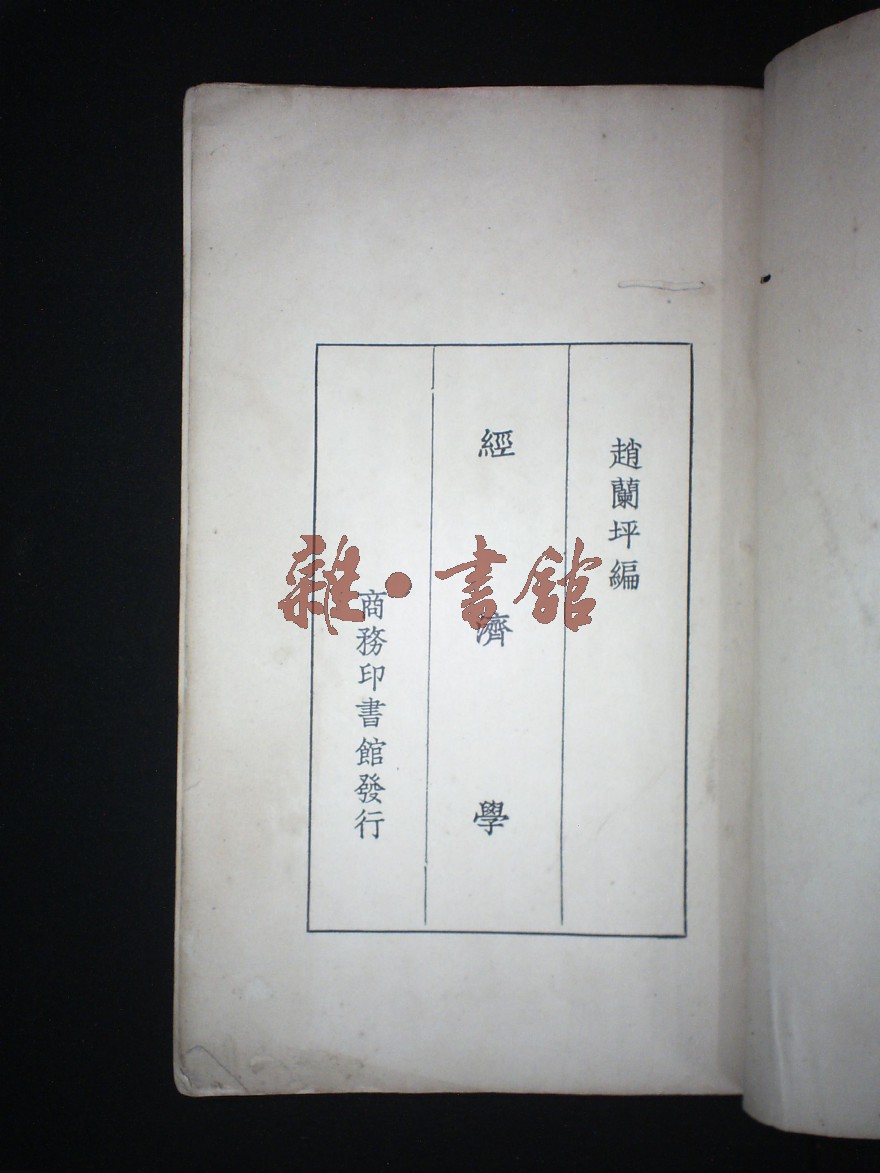 趙蘭坪編
經濟學
商務印書館發行
雜·書館